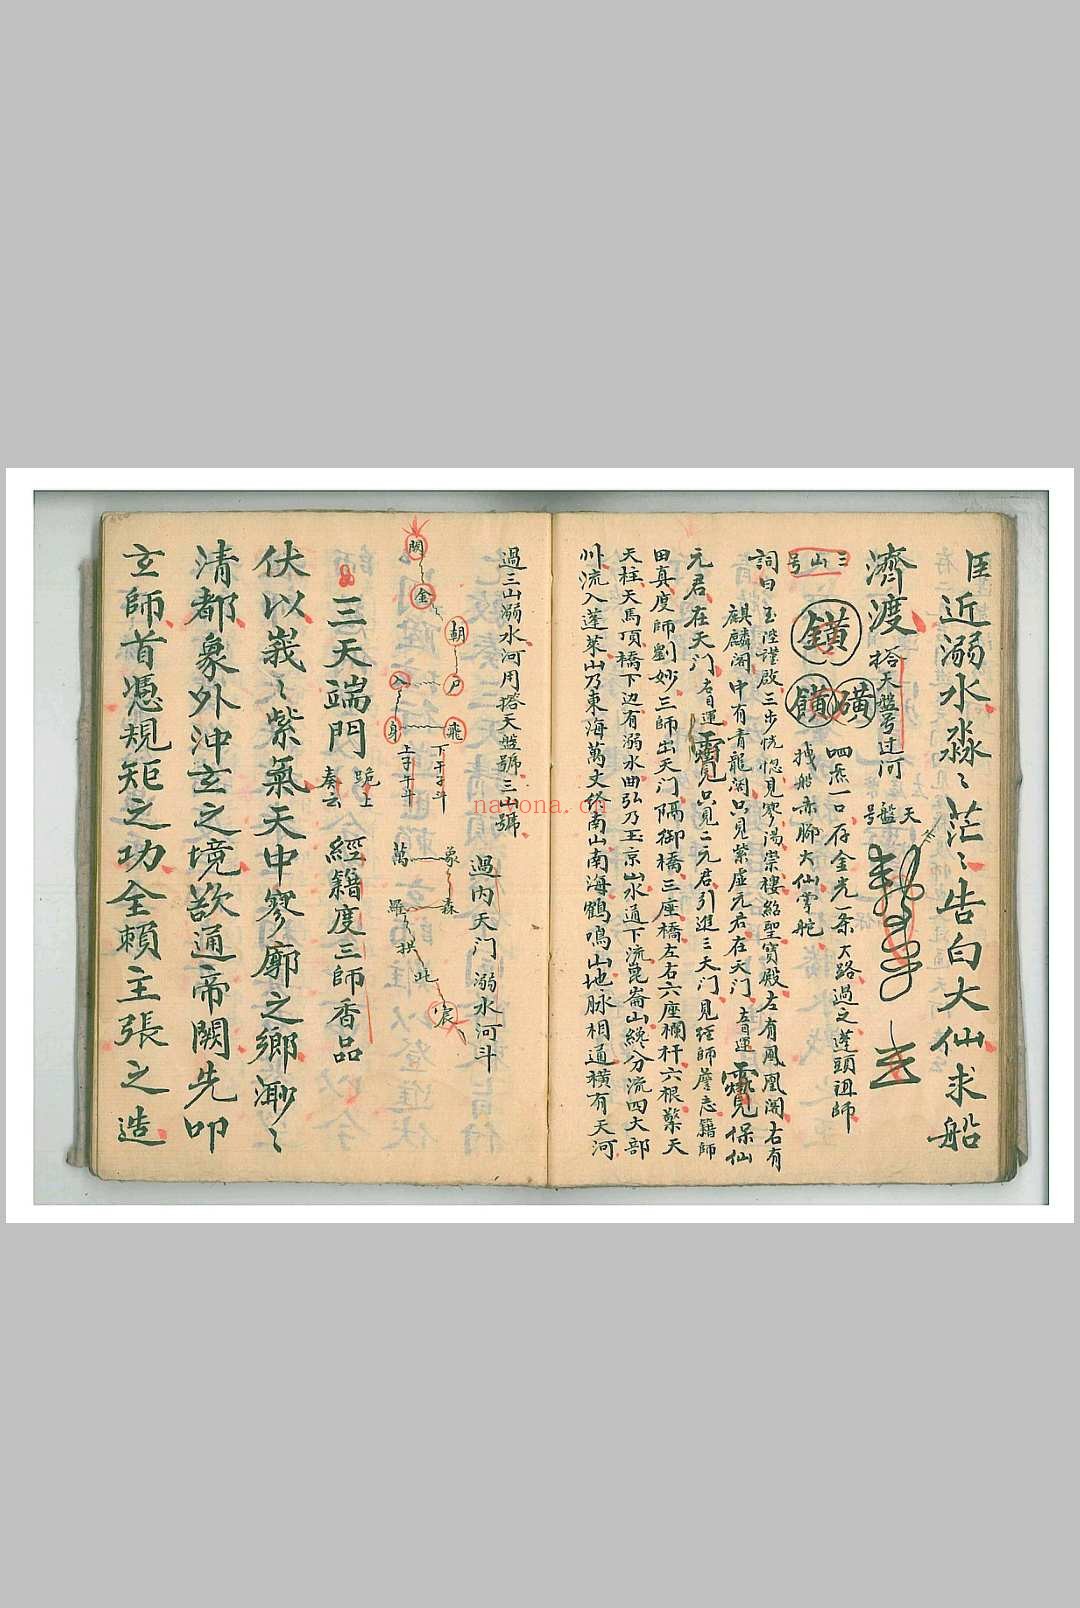 臣近溺水淼〻茫〻告白大仙求船
濟渡 搭天盤号过河
天盤号
三山号
存金光一条大路過之蓬頭祖師
拽船赤脚大仙掌舵
詞曰 玉陛謹啟三步恍惚見寥陽崇樓絳聖寶殿左有鳳凰阁右有
麒麟阁中有青龍阁只見紫虛元君在天门左目運 保仙
元君在天门右目運 只見二元君引進三天门見經師 籍師
田真度師劉妙三師出天门隔御橋三座橋左右六座欄杆六根擎天
天柱天馬項橋下边有溺水曲弘乃玉京山水通下流崑崙山纔分流四大部
州流入蓬萊山乃東海萬丈終南山南海鶴鳴山地脉相通横有天河
過三山溺水河用搭天盤號三山號
過内天门溺水河斗
闕 金 朝 戶 入 飛 身
象 森 萬 羅 拱 此 宸
三天端門 跪上奏云 經籍度三師香品
伏以峩〻紫氣天中寥廓之鄉渺〻
清都象外沖玄之境欲通帝闕先叩
玄師首憑規矩之功全賴主張之造
nayona.cn